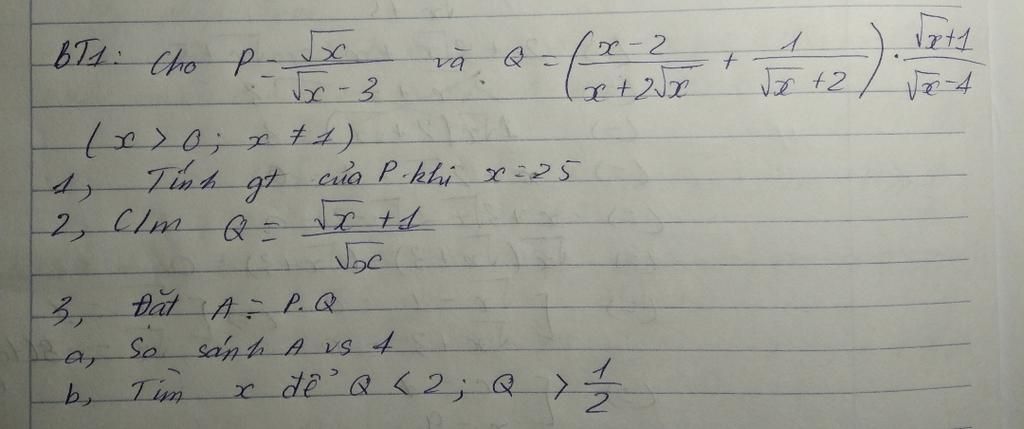 BT1: Cho P = √x / (√x - 3) và Q = ((x - 2) / (x + 2√x) + 1 / (√x + 2)) . (√x + 1) / (√x - 1)
(x > 0; x ≠ 1)
1, Tính gt của P khi x = 25
2, C/m Q = (√x + 1) / √x
3, Đặt A = P.Q
a, So sánh A vs 1
b, Tìm x để Q < 2; Q > 1/2